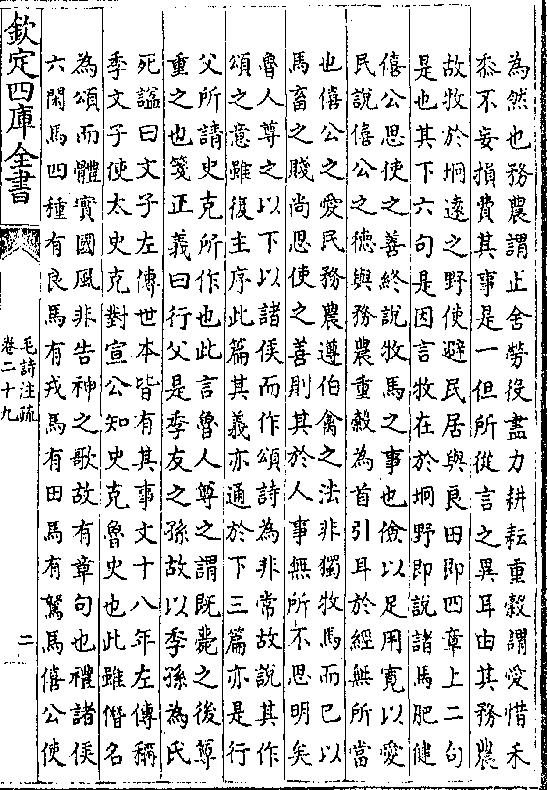 為然也務農謂止舍勞役盡力耕耘重穀謂愛惜禾
黍不妄損費其事是一但所從言之異耳由其務農
故牧於坰遠之野使避民居與良田即四章上二句
是也其下六句是因言牧在於坰野即說諸馬肥健
僖公思使之善終說牧馬之事也儉以足用寛以愛
民說僖公之德與務農重穀為首引耳於經無所當
也僖公之愛民務農遵伯禽之法非獨牧馬而已以
馬畜之賤尚思使之善則其於人事無所不思明矣
魯人尊之以下以諸侯而作頌詩為非常故說其作
頌之意雖復主序此篇其義亦通於下三篇亦是行
父所請史克所作也此言魯人尊之謂既薨之後尊
重之也箋正義曰行父是季友之孫故以季孫為氏
死謚曰文子左傳世本皆有其事文十八年左傳稱
季文子使太史克對宣公知史克魯史也此雖僭名
為頌而體實國風非告神之歌故有章句也禮諸侯
六閑馬四種有良馬有戎馬有田馬有駑馬僖公使
欽定四庫全書
毛詩注疏
卷二十九
二